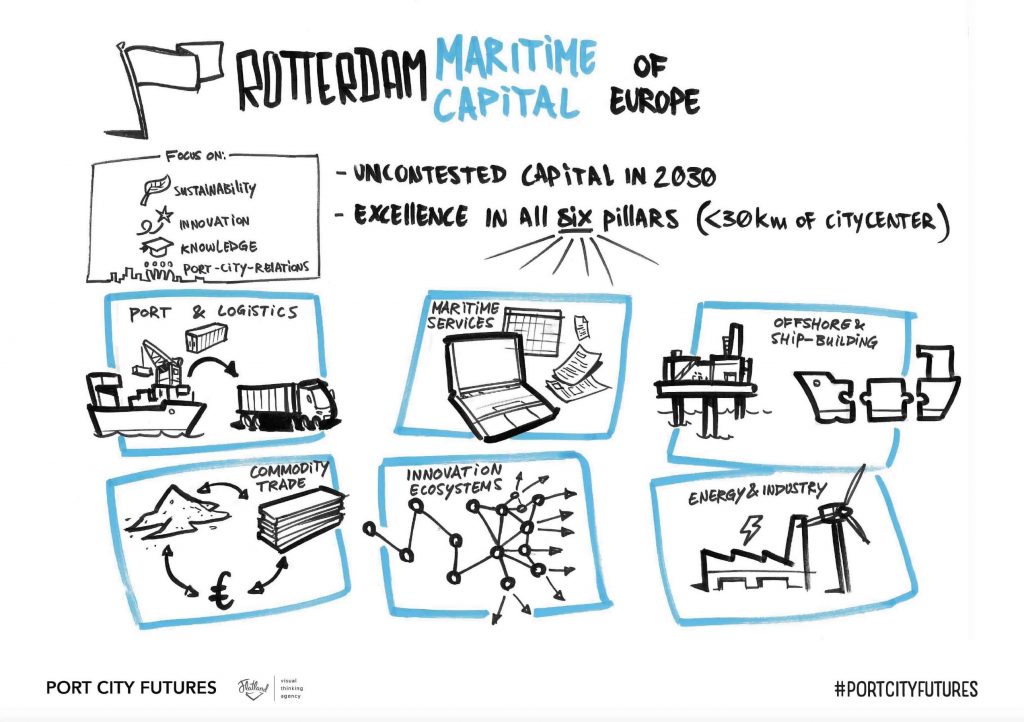 ROTTERDAM MARITIME CAPITAL OF EUROPE
FOCUS ON:
SUSTAINABILITY
INNOVATION
KNOWLEDGE
PORT-CITY-RELATIONS
- UNCONTESTED CAPITAL IN 2030
- EXCELLENCE IN ALL SIX PILLARS (<30KM OF CITYCENTER)
PORT & LOGISTICS
MARITIME
SERVICES
OFFSHORE &
SHIP-BUILDING
COMMODITY
TRADE
€
INNOVATION
ECOSYSTEMS
ENERGY & INDUSTRY
PORT CITY FUTURES
Flatland
visual
thinking
agency
#PORTCITYFUTURES